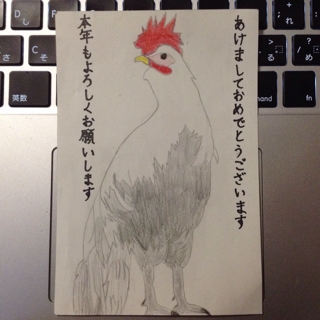 あけましておめでとうございます
本年もよろしくお願いします
英数
fn